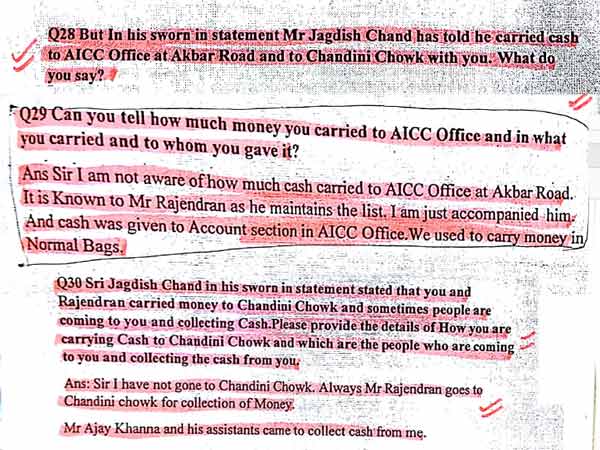 Q28 But In his sworn in statement Mr Jagdish Chand has told he carried cash
to AICC Office at Akbar Road and to Chandini Chowk with you. What do
you say?
Q29 Can you tell how much money you carried to AICC Office and in what
you carried and to whom you gave it?
Ans Sir I am not aware of how much cash carried to AICC Office at Akbar Road.
It is Known to Mr Rajendran as he maintains the list. I am just accompanied him.
And cash was given to Account section in AICC Office.We used to carry money in
Normal Bags.
Q30 Sri Jagdish Chand in his sworn in statement stated that you and
Rajendran carried money to Chandini Chowk and sometimes people are
coming to you and collecting Cash.Please provide the details of How you are
carrying Cash to Chandini Chowk and which are the people who are coming
to you and collecting the cash from you.
Ans: Sir I have not gone to Chandini Chowk. Always Mr Rajendran goes to
Chandini chowk for collection of Money.
Mr Ajay Khanna and his assistants came to collect cash from me.